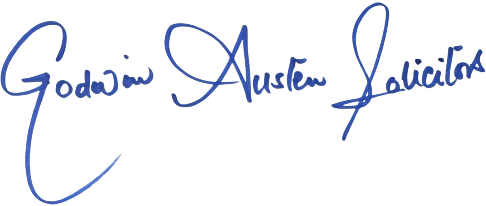 Godwin Austen Solicitors